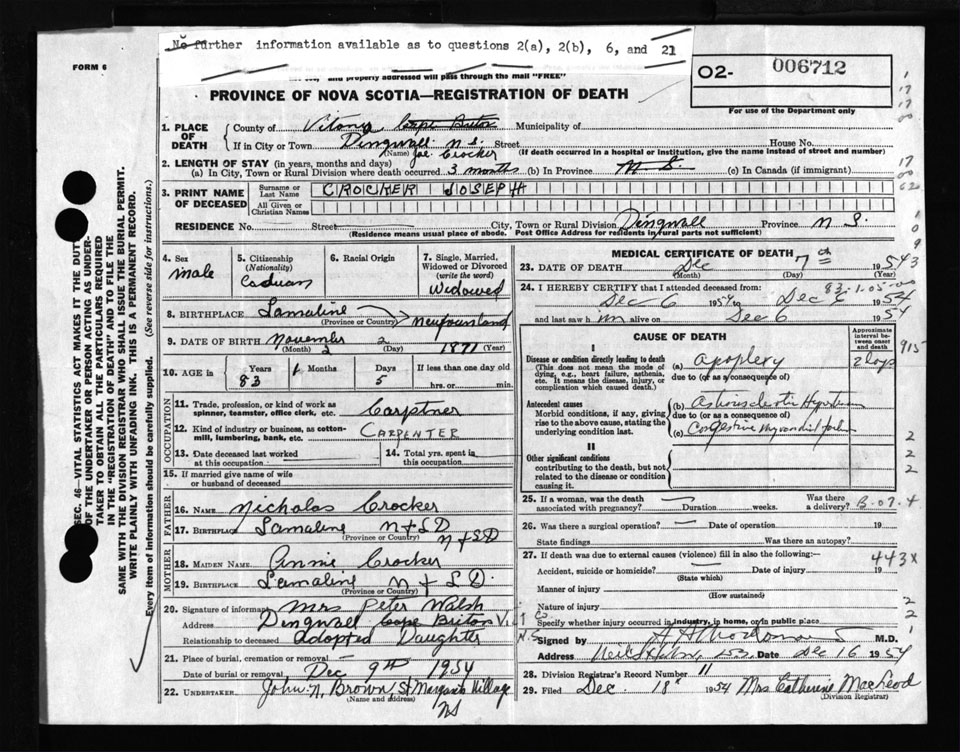 No further information available as to questions 2(a), 2(b), 6, and 21
FORM 6
and properly addressed will pass through the mail "FREE"
O2- 006712
For use of the Department only
PROVINCE OF NOVA SCOTIA—REGISTRATION OF DEATH
1. PLACE OF DEATH
County of Cape Breton Municipality of
If in City or Town Dingwall N S. Street House No.
(Name) Joe Crocker (If death occurred in a hospital or institution, give the name instead of street and number)
2. LENGTH OF STAY (in years, months and days)
(a) In City, Town or Rural Division where death occurred 3 months (b) In Province N. S. (c) In Canada (if immigrant)
3. PRINT NAME OF DECEASED
Surname or Last Name CROCKER JOSEPH
All Given or Christian Names
RESIDENCE No. Street City, Town or Rural Division Dingwall Province N S.
(Residence means usual place of abode. Post Office Address for residents in rural parts not sufficient)
4. Sex
male
5. Citizenship (Nationality)
6. Racial Origin
7. Single, Married, Widowed or Divorced (write the word)
Widowed
8. BIRTHPLACE Lamaline Newfoundland
(Province or Country)
9. DATE OF BIRTH November 2 1871 (Year)
(Month) (Day)
10. AGE in
Years 83
1 Months
Days 5
If less than one day old
hrs. or min.
OCCUPATION
11. Trade, profession, or kind of work as spinner, teamster, office clerk, etc. Carptner
12. Kind of industry or business, as cotton-mill, lumbering, bank, etc. CARPENTER
13. Date deceased last worked at this occupation
14. Total yrs. spent in this occupation
15. If married give name of wife or husband of deceased
FATHER
16. Name Nicholas Crocker
17. Birthplace Lamaline N F L D
(Province or Country) N F L D
MOTHER
18. MAIDEN NAME Annie Crocker
19. BIRTHPLACE Lamaline N F L D.
(Province or Country)
20. Signature of informant Mrs Peter Walsh
Address Dingwall Cape Briton
Relationship to deceased adopted Daughter
21. Place of burial, cremation or removal —
Date of burial or removal Dec 9th 1954
22. UNDERTAKER John N, Brown, St Margarets Village
(Name and address) NS
MEDICAL CERTIFICATE OF DEATH
23. DATE OF DEATH Dec 7th 1954
(Month) (Day) (Year)
24. I HEREBY CERTIFY that I attended deceased from:
Dec 6 1954 to Dec 6 1954
and last saw him alive on Dec 6 1954
CAUSE OF DEATH
Approximate interval between onset and death
I
Disease or condition directly leading to death
(This does not mean the mode of dying, e.g., heart failure, asthenia, etc. It means the disease, injury, or complication which caused death.)
(a) apoplexy 2 days
due to (or as a consequence of)
Antecedent causes
Morbid conditions, if any, giving rise to the above cause, stating the underlying condition last.
(b)
due to (or as a consequence of)
(c) Congestive
II
Other significant conditions
contributing to the death, but not related to the disease or condition causing it.
25. If a woman, was the death associated with pregnancy? Duration weeks. Was there a delivery?
26. Was there a surgical operation? — Date of operation 19
State findings Was there an autopsy?
27. If death was due to external causes (violence) fill in also the following:—
Accident, suicide or homicide? Date of injury 19
(State which)
Manner of injury
(How sustained)
Nature of injury
Specify whether injury occurred in industry, in home, or in public place
Signed by M.D.
Address Date Dec 16 1954
28. Division Registrar's Record Number 11
29. Filed Dec. 18th 1954 Mrs Catherine MacLeod
(Division Registrar)
443X
SEC. 46—VITAL STATISTICS ACT MAKES IT THE DUTY
OF THE UNDERTAKER OR PERSON ACTING AS UNDER-
TAKER TO OBTAIN ALL THE PARTICULARS REQUIRED
IN THE "REGISTRATION OF DEATH" AND TO FILE THE
SAME WITH THE DIVISION REGISTRAR WHO SHALL ISSUE THE BURIAL PERMIT.
WRITE PLAINLY WITH UNFADING INK. THIS IS A PERMANENT RECORD.
Every item of information should be carefully supplied. (See reverse side for instructions.)